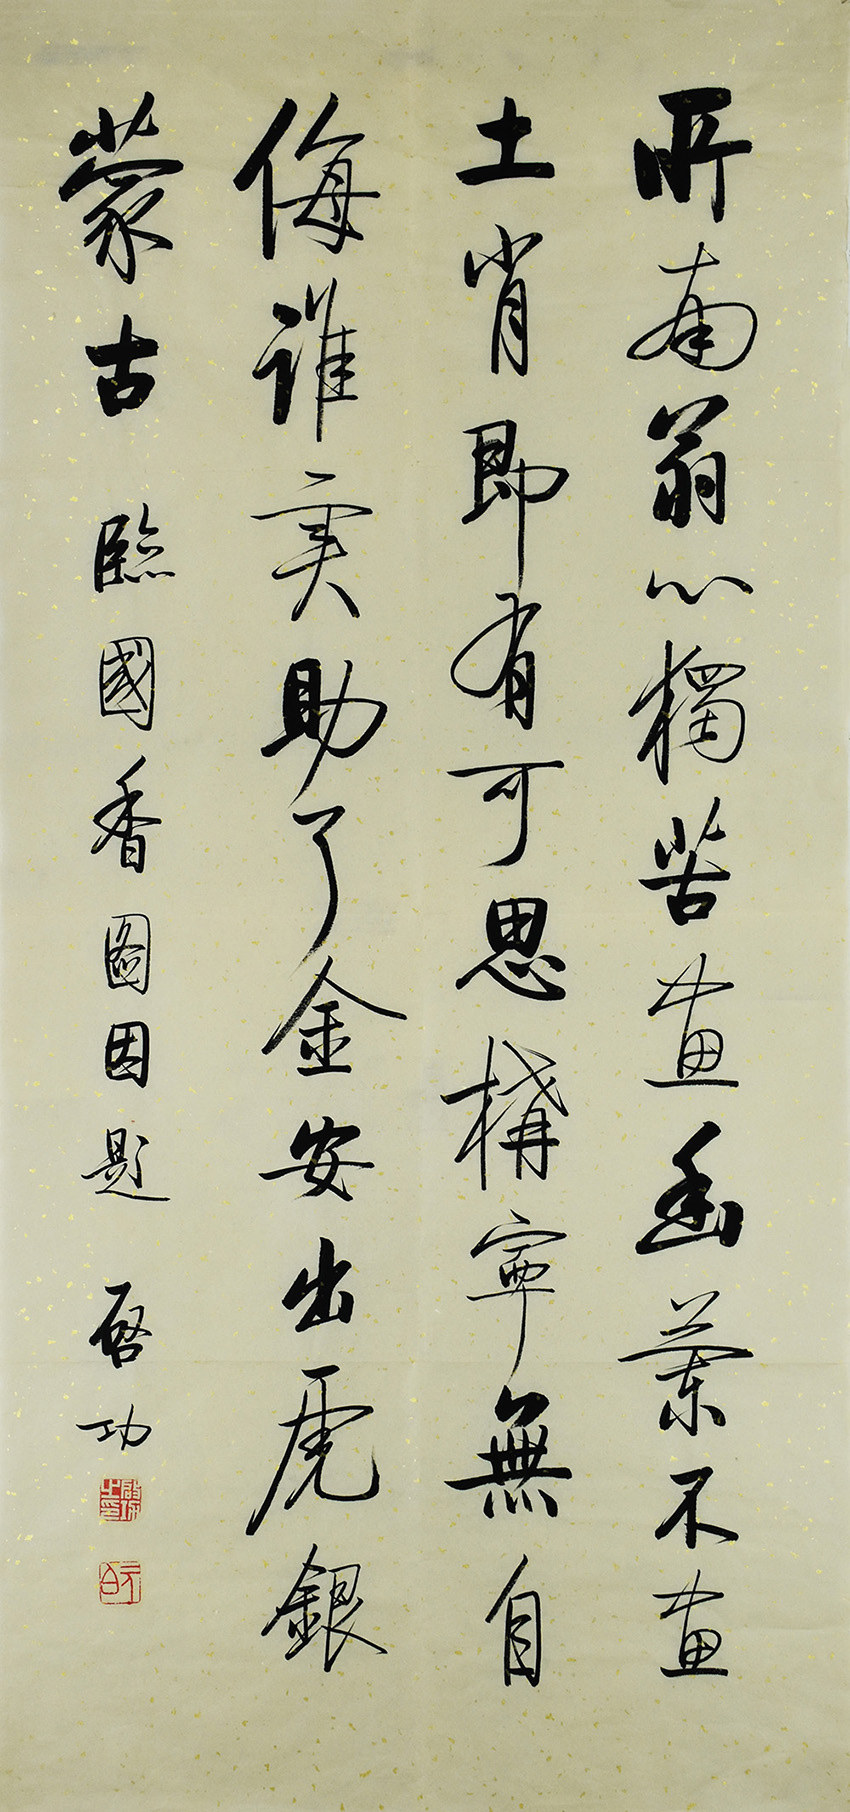 所南翁心獨苦畫幽蘭不畫
土肖即有可思構寧無自
侮誰実助了金安出虎銀
蒙古 臨國香圖因題 啓功
啟功之印
元白